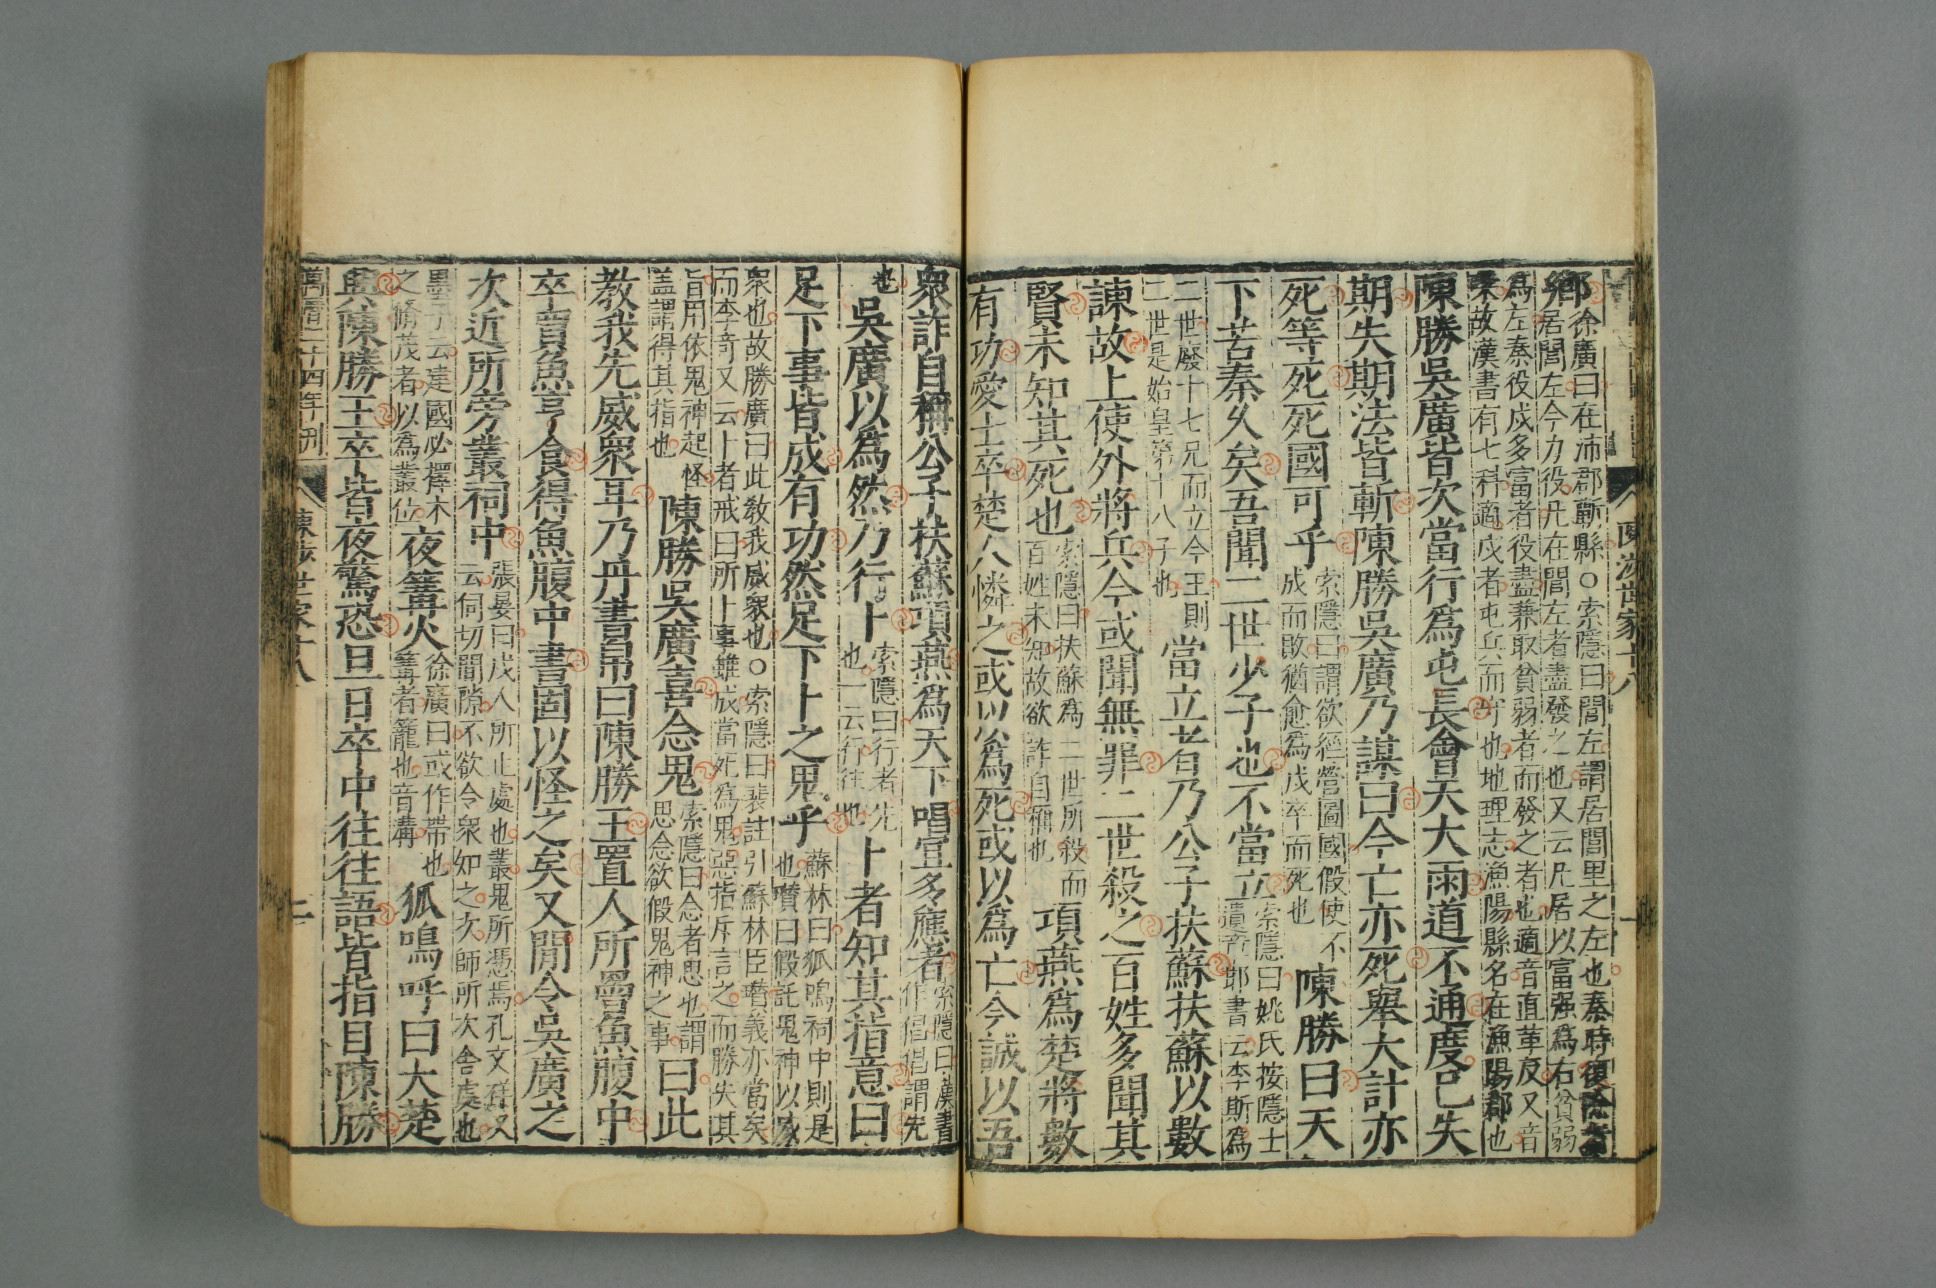 陳涉世家十八
鄉徐廣曰在沛郡蘄縣○索隱曰閭左謂居閭里之左也秦時復除者
居閭左今力役凡在閭左者盡發之也又云凡居以富强爲右貧弱
爲左秦役戍多富者役盡兼取貧弱者而發之者也適音直革反又音
故漢書有七科適戍者屯兵而守也地理志漁陽縣名在漁陽郡也
陳勝吳廣皆次當行爲屯長會天大雨道不通度已失
期失期法皆斬陳勝吳廣乃謀曰今亡亦死舉大計亦
死等死死國可乎索隱曰謂欲經營圖國假使不成而敗猶愈爲戍卒而死也陳勝曰天
下苦秦久矣吾聞二世少子也不當立索隱曰姚氏按隱士遺章邯書云李斯爲
二世廢十七兄而立今王則二世是始皇第十八子也當立者乃公子扶蘇扶蘇以數
諫故上使外將兵今或聞無罪二世殺之百姓多聞其
賢未知其死也索隱曰扶蘇爲二世所殺而百姓未知故欲詐自稱也項燕爲楚將數
有功愛士卒楚人憐之或以爲死或以爲亡今誠以吾
衆詐自稱公子扶蘇項燕爲天下唱宜多應者索隱曰漢書作倡倡謂先
也吳廣以爲然乃行卜索隱曰行者先也一云行往也卜者知其指意曰
足下事皆成有功然足下卜之鬼乎蘇林曰狐鳴祠中則是也瓚曰假託鬼神以威
衆也故勝廣曰此教我威衆也○索隱曰裴註引蘇林臣瓚義亦當矣
而李奇又云卜者戒曰所卜事雖成當死爲鬼惡指斥言之而勝失其
旨用依鬼神起怪蓋謂得其指也陳勝吳廣喜念鬼索隱曰念者思也謂思念欲假鬼神之事曰此
教我先威衆耳乃丹書帛曰陳勝王置人所罾魚腹中
卒買魚烹食得魚腹中書固以怪之矣又閒令吳廣之
次近所旁叢祠中張晏曰戍人所止處也叢鬼所憑焉孔文祥又云伺切閒隙不欲令衆知之次師所次舍處也
墨子云建國必擇木之脩茂者以爲叢位夜篝火徐廣曰或作帶也篝者籠也音溝狐鳴呼曰大楚
興陳勝王卒皆夜驚恐旦日卒中往往語皆指目陳勝
萬曆二十四年刊
陳涉世家十八
二